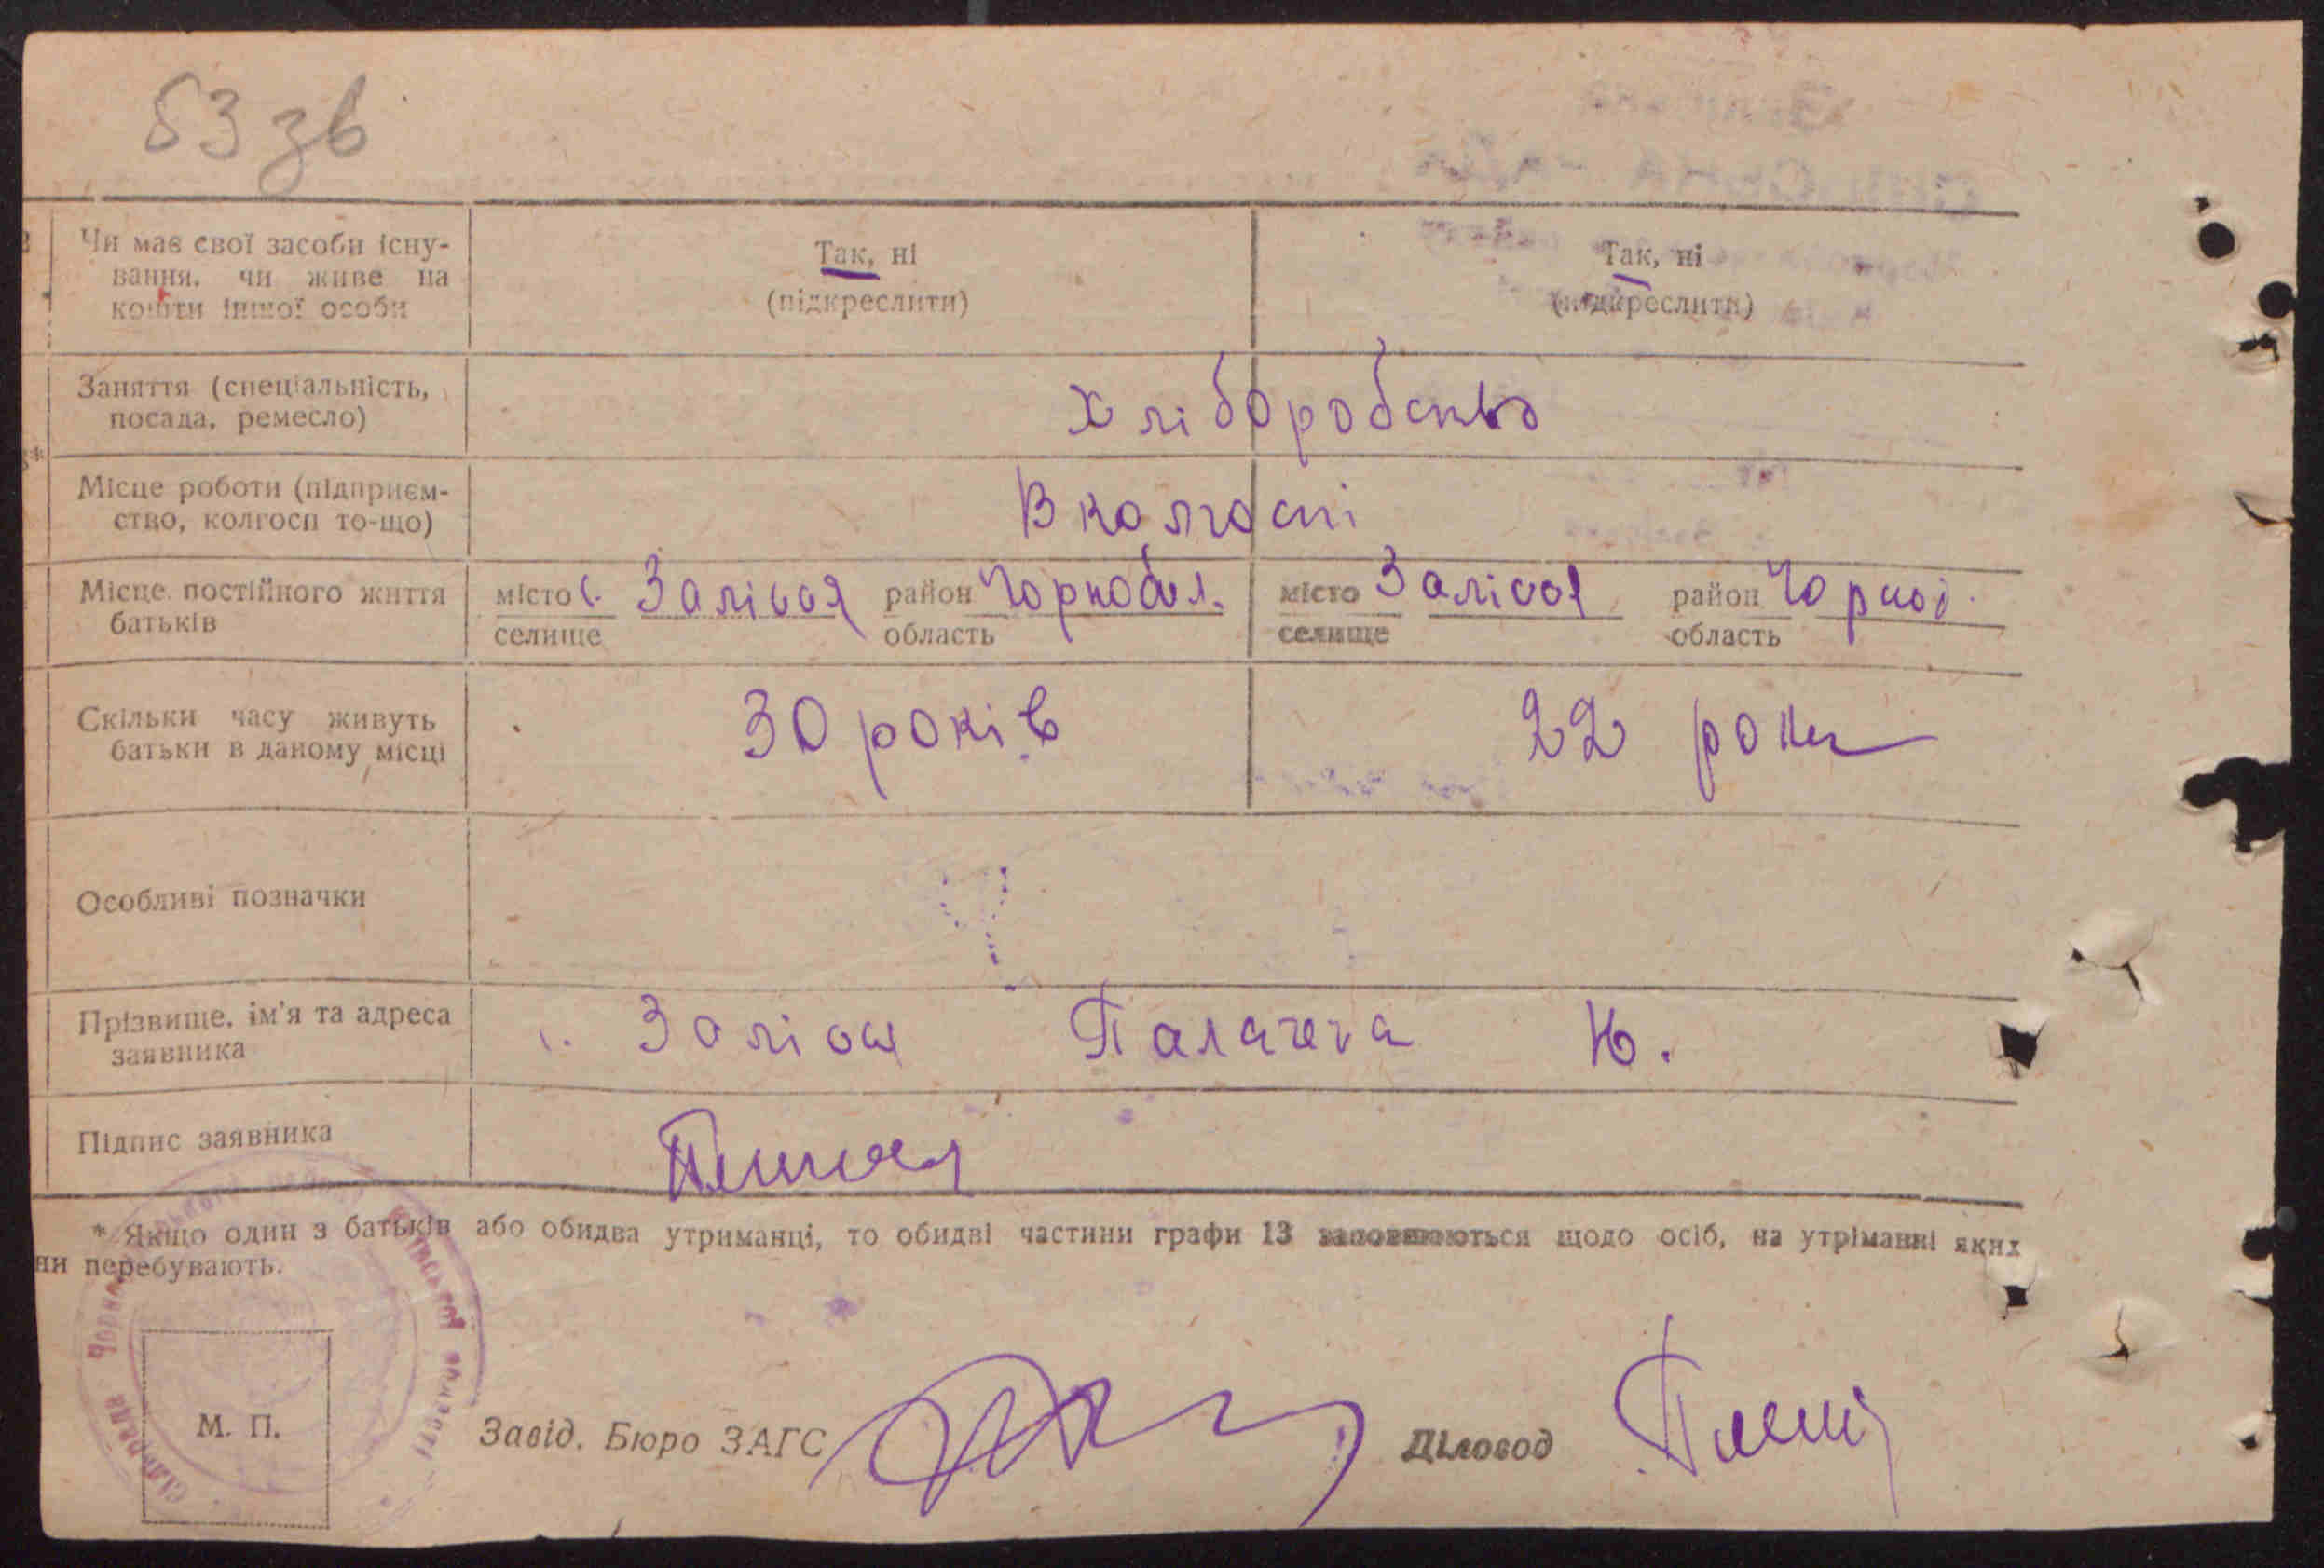 53 зв
Чи має свої засоби існу-
вання, чи живе на
кошти іншої особи
Так, ні
(підкреслити)
Так, ні
(підкреслити)
Заняття (спеціальність,
посада, ремесло)
Хліборобство
Місце роботи (підприєм-
ство, колгосп то-що)
В колгоспі
Місце постійного життя
батьків
місто с. Залісся район Чорнобил.
селище область
місто Залісся район Чорноб.
селище область
Скільки часу живуть
батьки в даному місці
30 років
22 роки
Особливі позначки
Прізвище, ім'я та адреса
заявника
с. Залісся Н.
Підпис заявника
* Якщо один з батьків або обидва утриманці, то обидві частини графи 13 заповнюються щодо осіб, на утріманні яких
ни перебувають.
М. П.
Завід. Бюро ЗАГС
Діловод